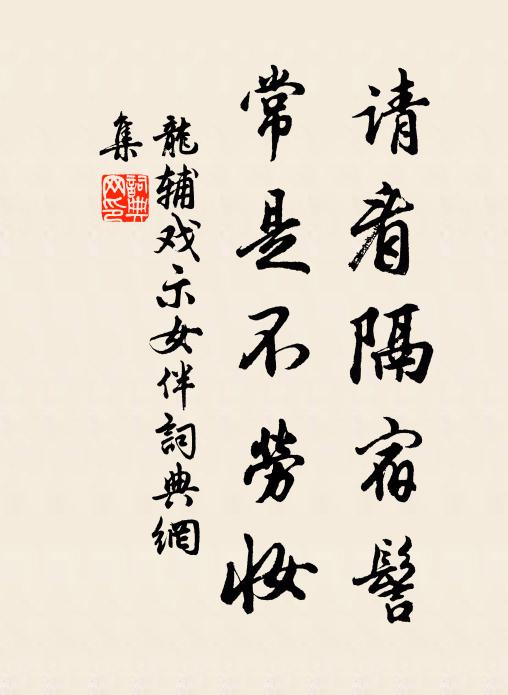 请看隔宿髻
常是不劳妆
龍辅戏示女伴詞典網
集
詞典
网印